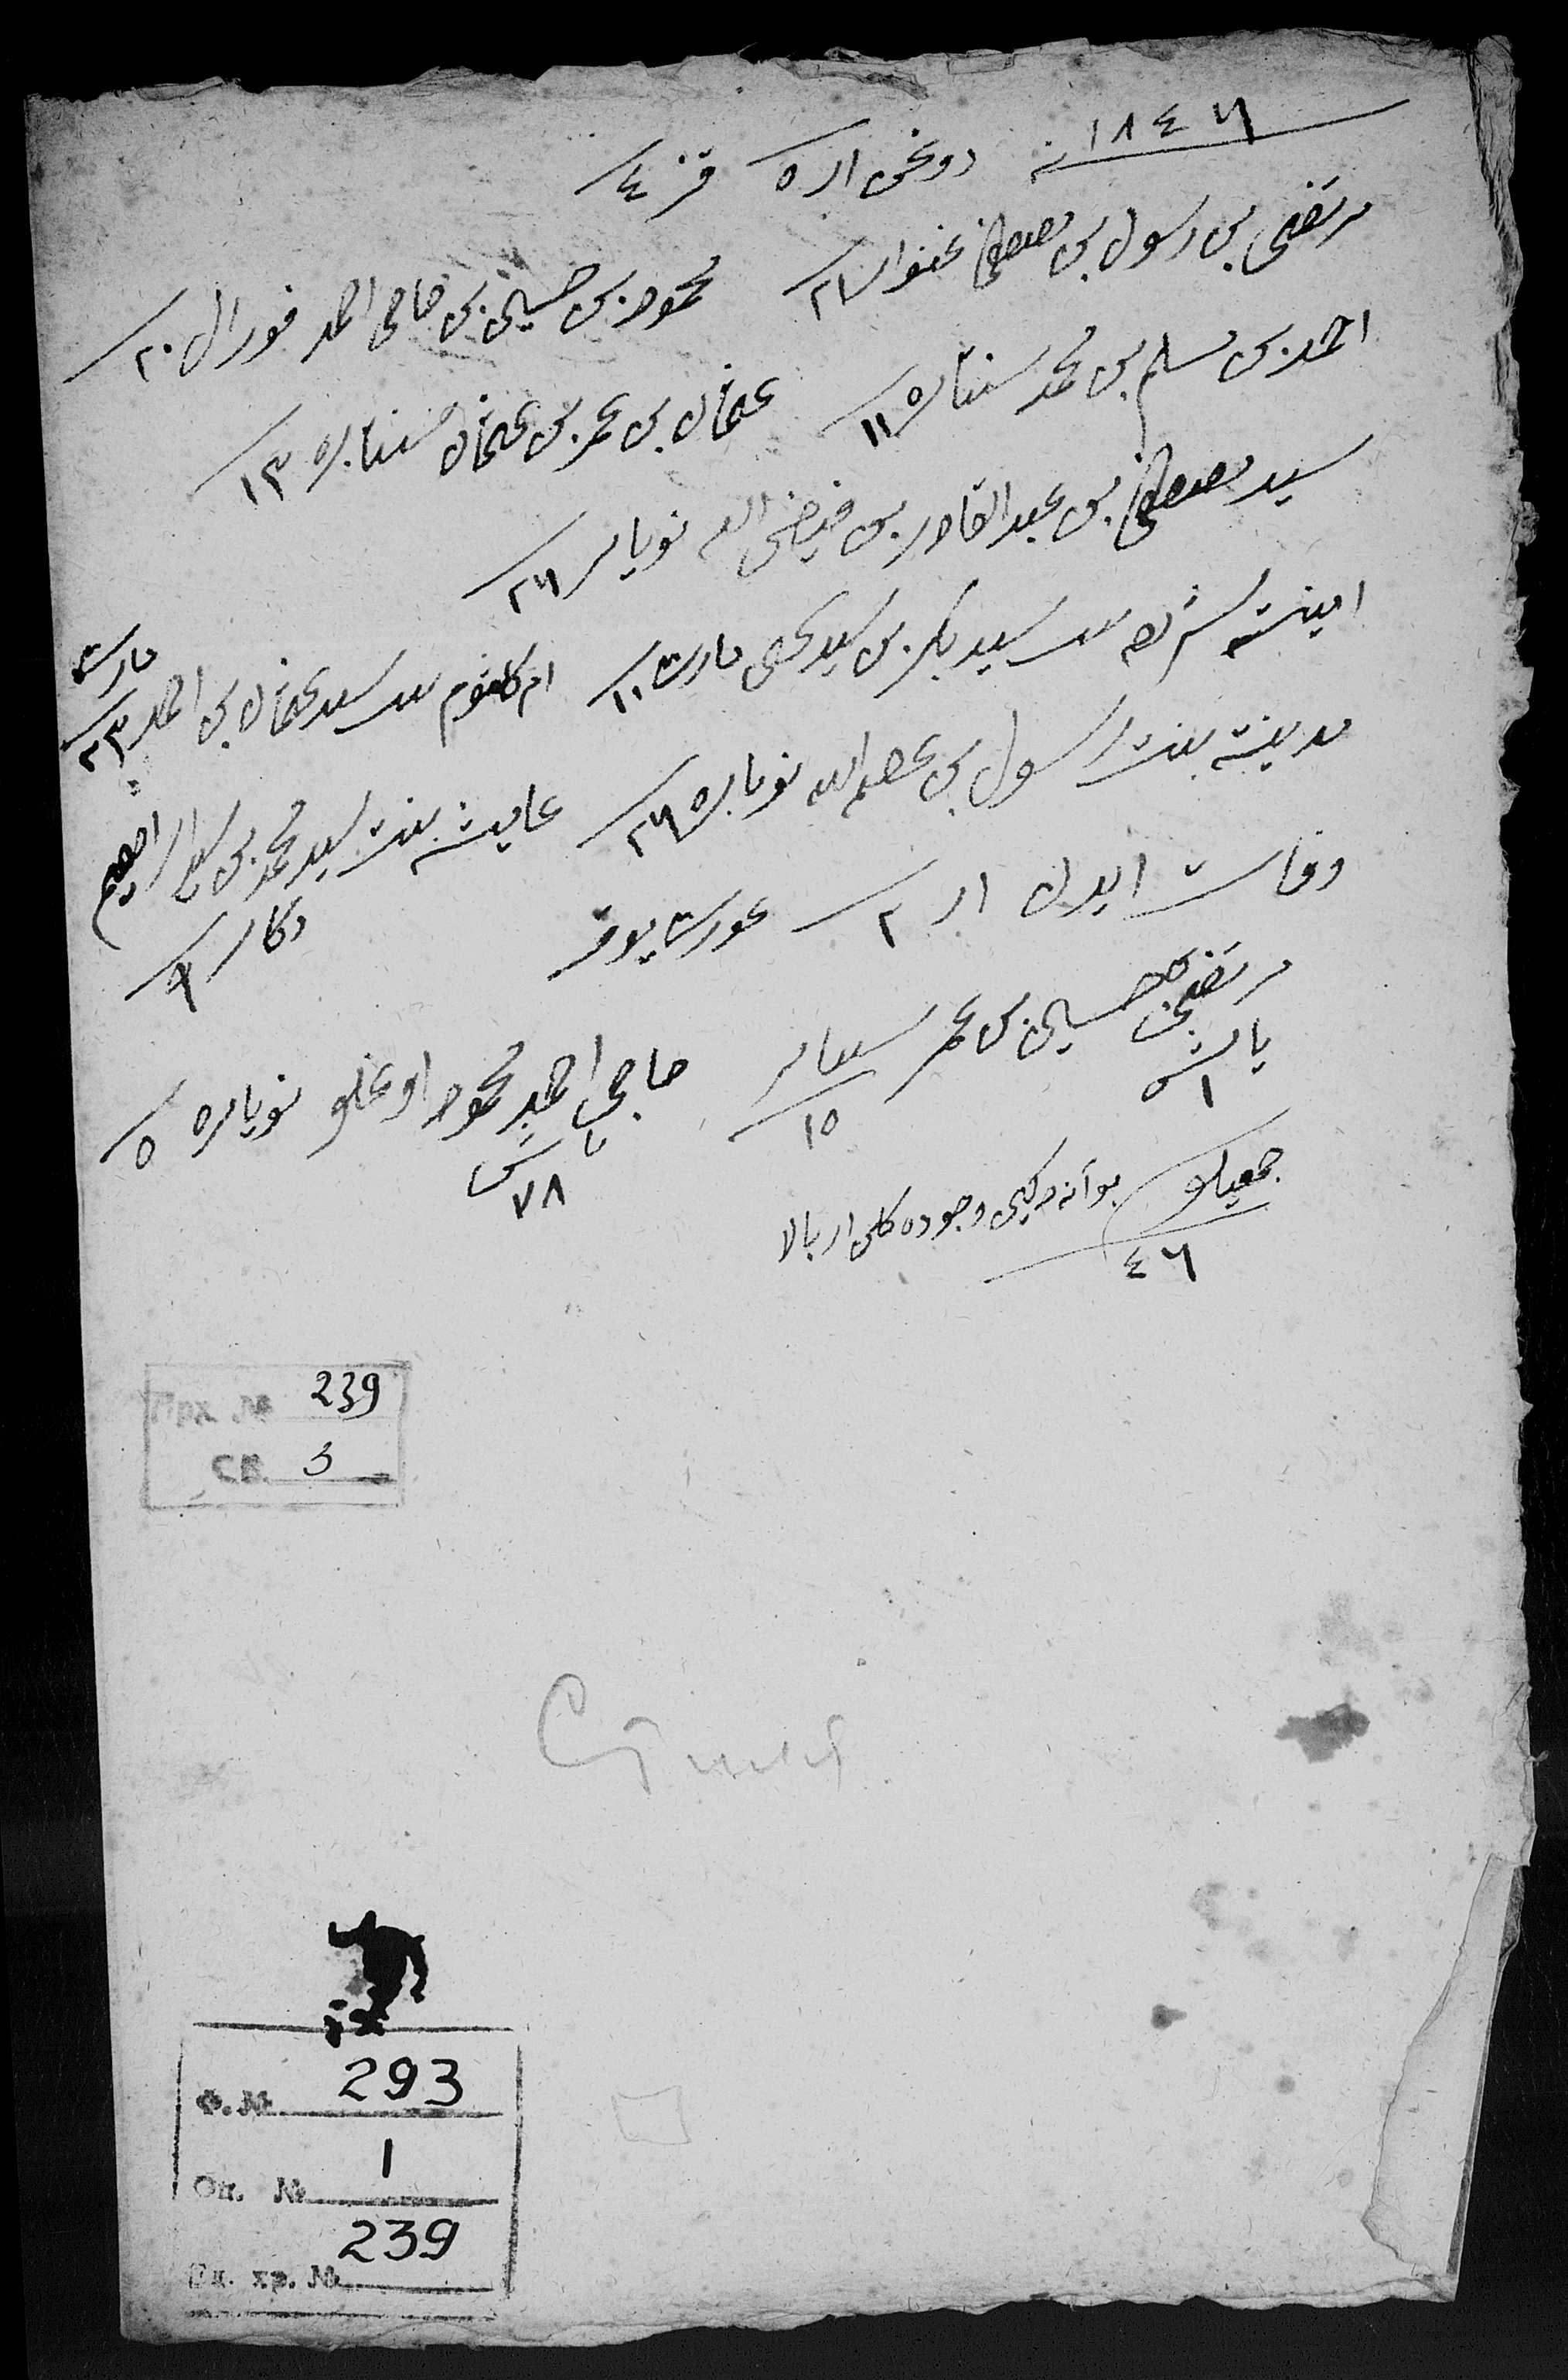 ١٨٤٦ نه دوغن ار ٥ قز ٤
مرتضى بن رسول بن مصطفى غنوار ٢١ محمود بن حسين بن حاجى احمد فورال ٢٠
احمد بن مسلم بن محمد سنتابره ١١ عثمان بن عمر بن عثمان سنتابره ١٣
سيد مصطفى بن عبد القادر بن فيض الله نويابر ٢٦
امينه شريفه بنت سيد بكر بن سيد مارت ١٠ ام كلثوم بنت سيد عثمان بن احمد ٢٣
مارت
مدينه بنت رسول بن عصم الله نويابره ٢٦ عايشه بنت سيد محمد بن سيد ابراهيم
دكابر ٩
وفات ايدن ار ٢ عورت يوق
مرتضى بن حسين بن عمر ١٥ حاجى احمد محمود اوغلو نويابره ٥
ياش ١
ياش ٧٨
جمعيكو بو آنه دكين وجوده كلن ار بالا
٤٦
Арх. № 239
СВ. 3
Ф. № 293
Оп. № 1
Ед. хр. № 239